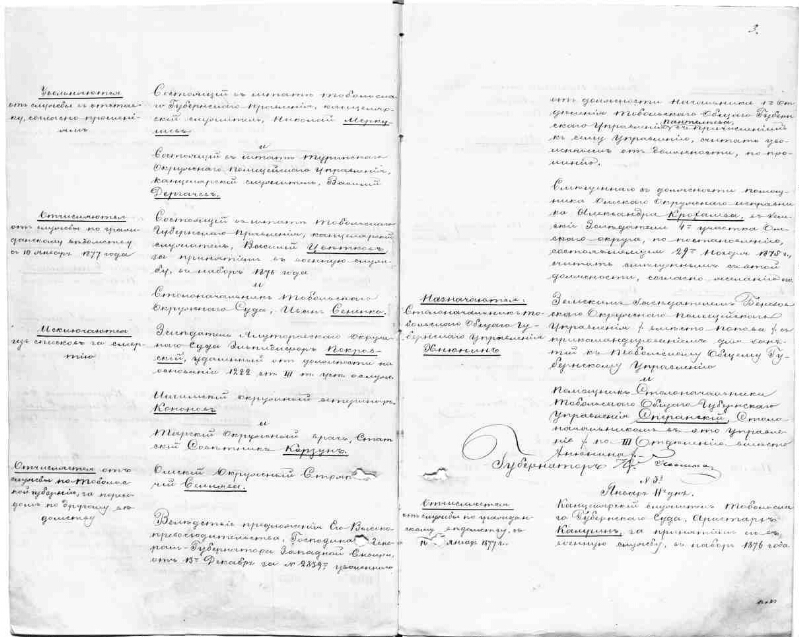 Увольняются
отъ службы въ отстав-
ку, согласно прошені-
ямъ
Состоящій въ штатѣ Тобольска-
го Губернскаго Правленія, канцеляр-
скій служитель, Николай Мерку-
шевъ
и
Состоящій въ штатѣ Туринскаго
Окружнаго Полицейскаго Управленія,
канцелярскій служитель, Василій
Дергачевъ.
Отчисляются
отъ службы по граж-
данскому вѣдомству
съ 10 Января 1877 года
Состоящій въ штатѣ Тобольскаго
Губернскаго Правленія, канцелярскій
служитель, Василій
за принятіемъ въ военную служ-
бу, въ наборъ 1876 года
и
Столоначальникъ Тобольскаго
Окружнаго Суда,
Исключаются
изъ списковъ за смер-
тію
Засѣдатель Ялуторовскаго Окруж-
наго Суда Покров-
скій, удаленный отъ должности на
основаніи 1222 ст. III т. уст. о служ.
Ишимскій окружной ветеринаръ
Кононовъ
и
Тарскій Окружной врачъ, Стат-
скій Совѣтникъ Корзунъ.
Отчисляется отъ
службы по Тоболь-
ской губерніи, за перехо-
домъ по другому вѣ-
домству
Омскій Окружной Стряп-
чій
Вслѣдствіе предложенія Его Высоко-
превосходительства, Господина Гене-
ралъ-Губернатора Западной Сибири,
отъ 13го Декабря за № уволеннаго
3.
отъ должности Начальника 1го От-
дѣленія Тобольскаго Общаго Губерн-
скаго Управленія причисленный
къ сему Управленію, считать уво-
леннымъ отъ должности, по про-
шенію.
къ должности помощ-
ника Омскаго Окружнаго исправни-
ка Александра
скій Засѣдатель 4го участка Ом-
скаго округа, по постановленію,
состоявшемуся 29го Ноября 1875 г.,
считать въ этой
должности, согласно желанію.
Назначаются:
Столоначальникъ То-
больскаго Общаго Гу-
бернскаго Управленія
Янюкинъ
Земскимъ Засѣдателемъ Березов-
скаго Окружнаго Полицейскаго
Управленія (вмѣсто Попова) съ
прикомандированіемъ для заня-
тій къ Тобольскому Общему Гу-
бернскому Управленію
и
Помощникъ Столоначальника
Тобольскаго Общаго Губернскаго
Управленія Сперанскій, Столо-
начальникомъ въ это Управле-
ніе (по III Отдѣленію вмѣсто
Янюкина).
Губернаторъ
№ 3й
Января 11го дня.
Отчисляется
отъ службы по граждан-
скому вѣдомству, съ
Января 1877 г.
Канцелярскій служитель Тобольска-
го Губернскаго Суда, Аристархъ
за принятіемъ въ в-
оенную службу, въ наборъ 1876 года